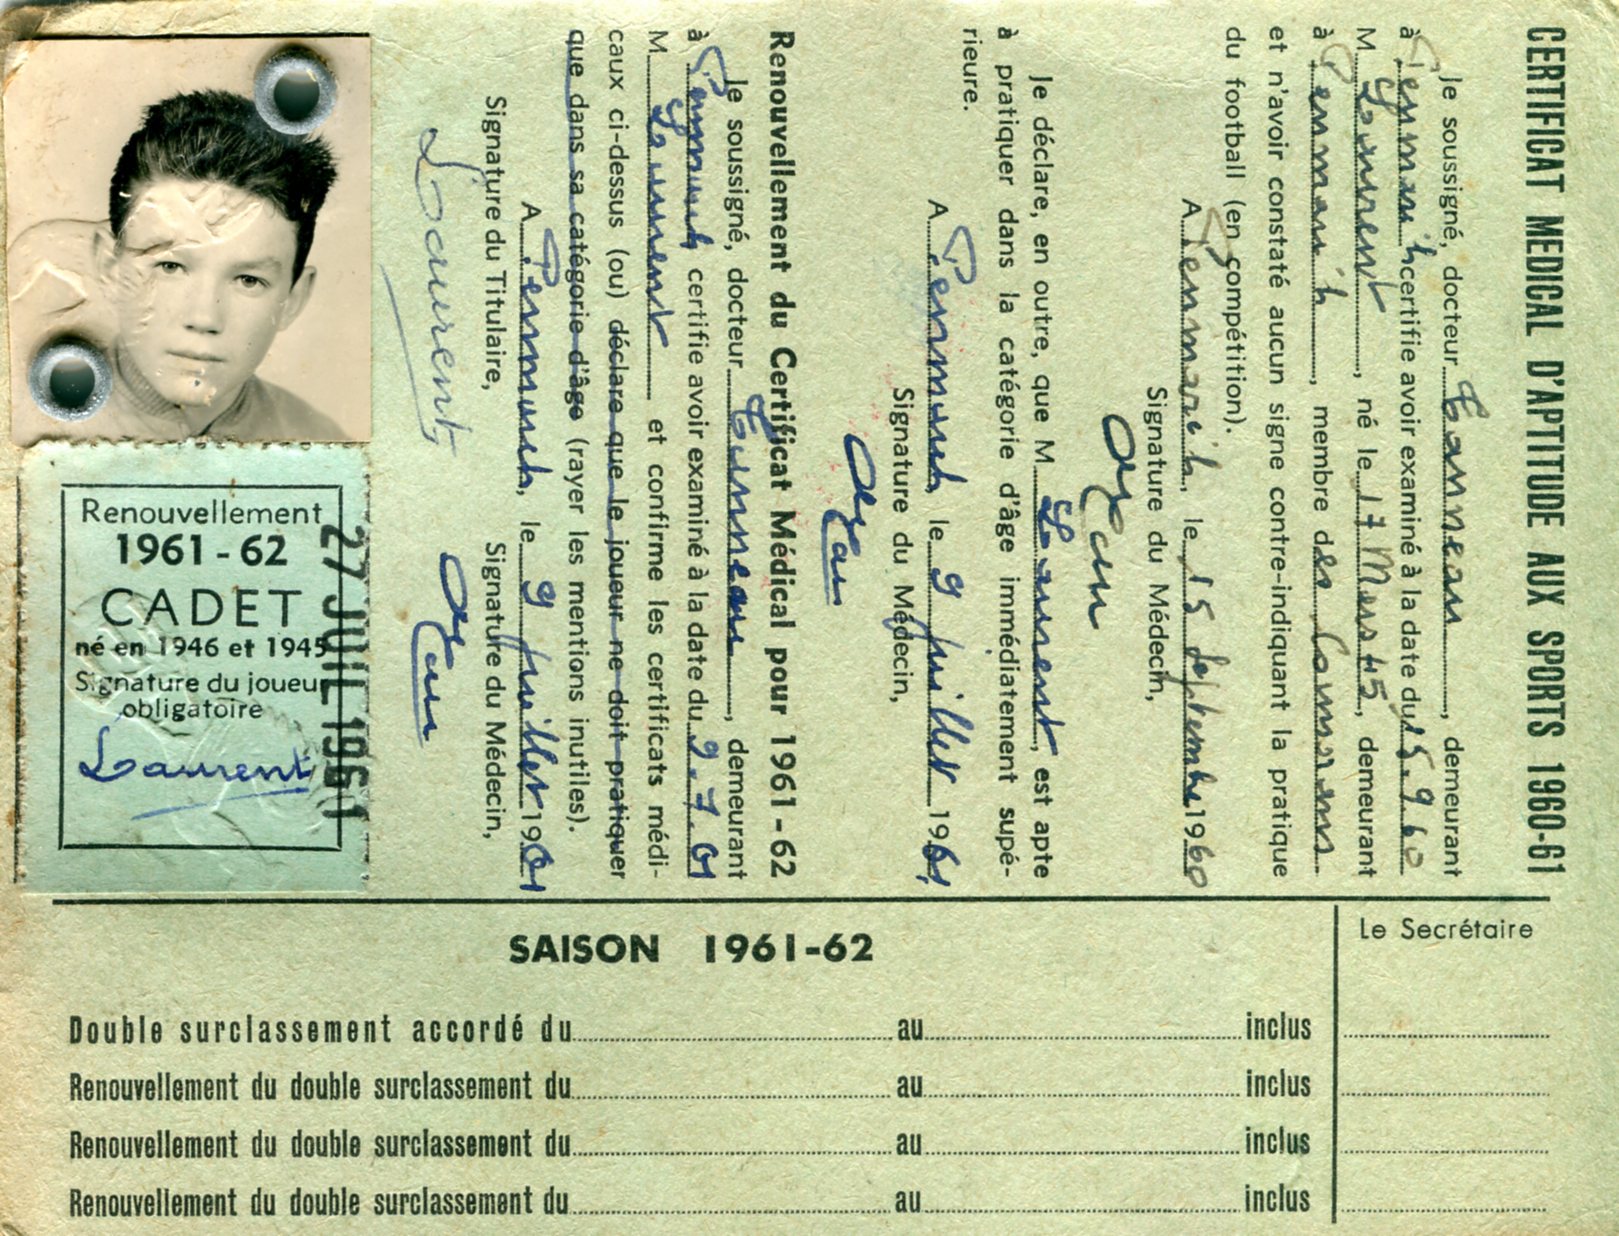 CERTIFICAT MEDICAL D'APTITUDE AUX SPORTS 1960-61
Je soussigné, docteur Tanneau, demeurant
à Penmarch certifie avoir examiné à la date du 15.9.60
M. Laurent, né le 17 Mars 45, demeurant
à Penmarch, membre des
et n'avoir constaté aucun signe contre-indiquant la pratique
du football (en compétition).
A Penmarch, le 15 Septembre 1960
Signature du Médecin,
Je déclare, en outre, que M. Laurent, est apte
à pratiquer dans la catégorie d'âge immédiatement supé-
rieure.
A Penmarch, le 9 Juillet 1961
Signature du Médecin,
Renouvellement du Certificat Médical pour 1961-62
Je soussigné, docteur Tanneau, demeurant
à Penmarch certifie avoir examiné à la date du 9.7.61
M. Laurent et confirme les certificats médi-
caux ci-dessus (ou) déclare que le joueur ne doit pratiquer
que dans sa catégorie d'âge (rayer les mentions inutiles).
A Penmarch, le 9 Juillet 1961
Signature du Titulaire, Signature du Médecin,
Laurent
Renouvellement
1961-62
CADET
né en 1946 et 1945
Signature du joueur
obligatoire
Laurent
27 JUIL 1961
SAISON 1961-62
Le Secrétaire
Double surclassement accordé du au inclus
Renouvellement du double surclassement du au inclus
Renouvellement du double surclassement du au inclus
Renouvellement du double surclassement du au inclus